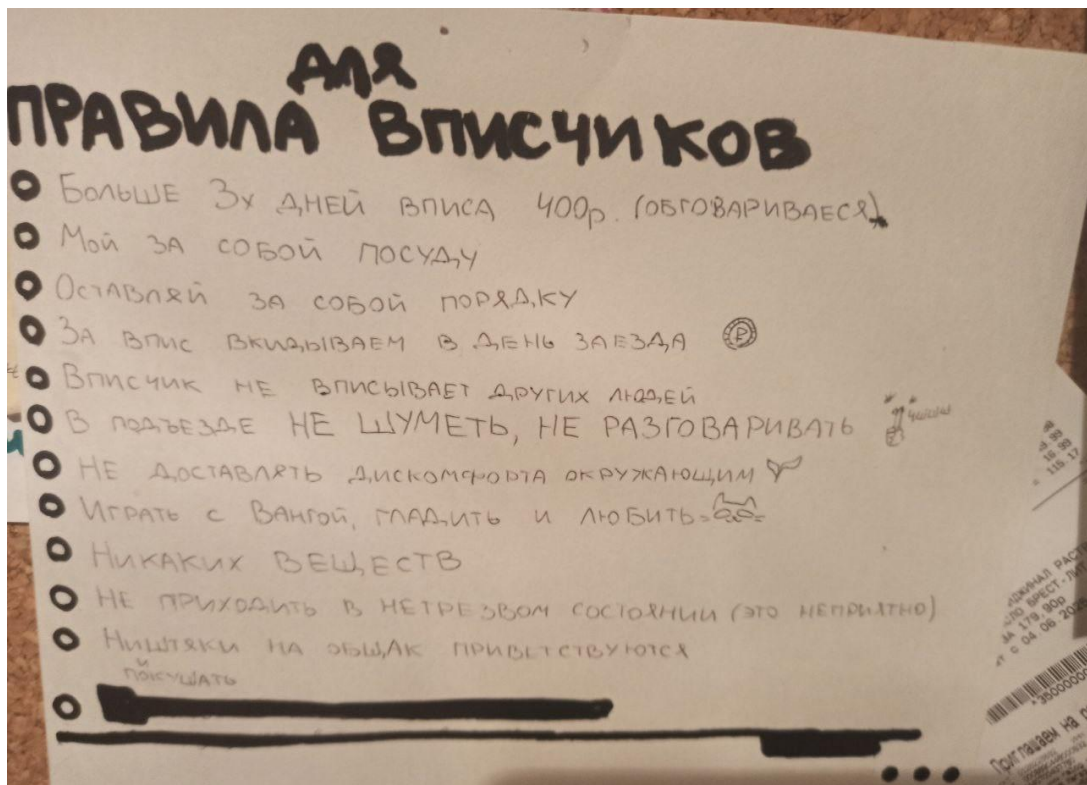 ДЛЯ
ПРАВИЛА ВПИСЧИКОВ
БОЛЬШЕ 3х ДНЕЙ ВПИСА 400р. (ОБГОВАРИВАЕСЯ)
МОЙ ЗА СОБОЙ ПОСУДУ
ОСТАВЛЯЙ ЗА СОБОЙ ПОРЯДКУ
ЗА ВПИС ВКИДЫВАЕМ В ДЕНЬ ЗАЕЗДА ₽
ВПИСЧИК НЕ ВПИСЫВАЕТ ДРУГИХ ЛЮДЕЙ
В ПОДЪЕЗДЕ НЕ ШУМЕТЬ, НЕ РАЗГОВАРИВАТЬ
НЕ ДОСТАВЛЯТЬ ДИСКОМФОРТА ОКРУЖАЮЩИМ
ИГРАТЬ С ВАНГОЙ, ГЛАДИТЬ И ЛЮБИТЬ
НИКАКИХ ВЕЩЕСТВ
НЕ ПРИХОДИТЬ В НЕТРЕЗВОМ СОСТОЯНИИ (ЭТО НЕПРИЯТНО)
НИШТЯКИ НА ОБЩАК ПРИВЕТСТВУЮТСЯ
И
ПОКУШАТЬ
99
16 99
115.17
БРЕСТ-ЛИТ
179,90р
с 04 06
Приглашаем на